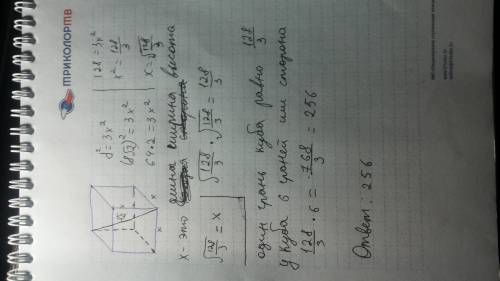 ТРИКОЛОР ТВ
d²=3x²
(8√2)²=3x²
64•2=3x²
128=3x²
x²=128/3
x=√128/3
x x
x- это длина ширина высота
√128/3 = x
√128/3 · √128/3 = 128/3
один грань куба равно 128/3
у куба 6 граней или сторона
128/3 · 6 = 768/3 = 256
Ответ: 256